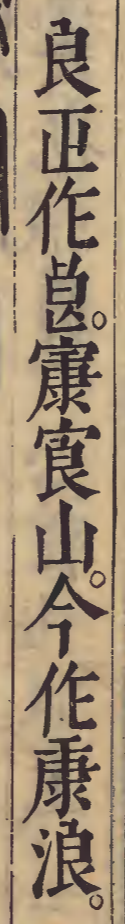 良正作㫐。㝩㝗山。今作康浪。